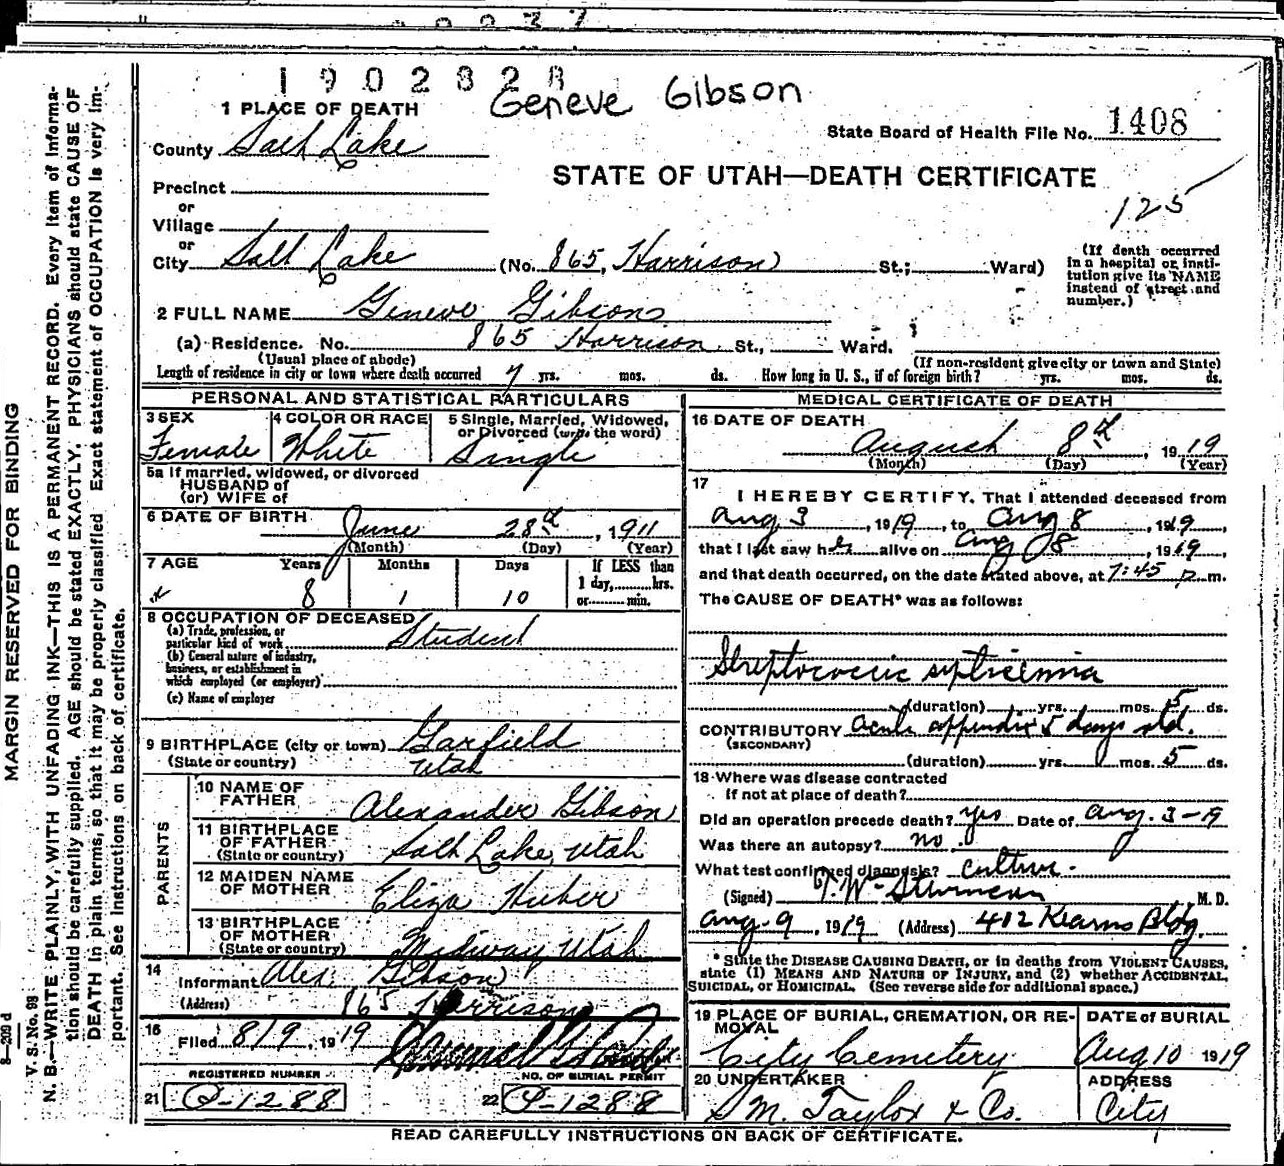 1902828
Geneve Gibson
1 PLACE OF DEATH
State Board of Health File No. 1408
County Salt Lake
STATE OF UTAH—DEATH CERTIFICATE
Precinct
125
or
Village
or
City Salt Lake (No. 865, Harrison St.; Ward)
(If death occurred
in a hospital or insti-
tution give its NAME
instead of street and
number.)
2 FULL NAME Geneve Gibson
(a) Residence. No. 865 Harrison St., Ward.
(Usual place of abode)
(If non-resident give city or town and State)
Length of residence in city or town where death occurred 7 yrs. mos. ds. How long in U. S., if of foreign birth? yrs. mos. ds.
PERSONAL AND STATISTICAL PARTICULARS
3 SEX
Female
4 COLOR OR RACE
White
5 Single, Married, Widowed,
or Divorced (write the word)
Single
5a If married, widowed, or divorced
HUSBAND of
(or) WIFE of
6 DATE OF BIRTH June 28th, 1911
(Month) (Day) (Year)
7 AGE Years Months Days
8 1 10
If LESS than
1 day, hrs.
or min.
8 OCCUPATION OF DECEASED
(a) Trade, profession, or
particular kind of work Student
(b) General nature of industry,
business, or establishment in
which employed (or employer)
(c) Name of employer
9 BIRTHPLACE (city or town) Garfield
(State or country) Utah
PARENTS
10 NAME OF
FATHER Alexander Gibson
11 BIRTHPLACE
OF FATHER
(State or country) Salt Lake, Utah
12 MAIDEN NAME
OF MOTHER Eliza Huber
13 BIRTHPLACE
OF MOTHER
(State or country) Midway Utah
14
Informant Alex. Gibson
(Address) 865 Harrison
15
Filed 8/9, 1919
REGISTERED NUMBER
21 Q-1288
NO. OF BURIAL PERMIT
22 Q-1288
MEDICAL CERTIFICATE OF DEATH
16 DATE OF DEATH
August 8th, 1919
(Month) (Day) (Year)
17
I HEREBY CERTIFY, That I attended deceased from
Aug 3, 1919, to Aug 8, 1919,
that I last saw her alive on Aug 8, 1919,
and that death occurred, on the date stated above, at 7:45 p.m.
The CAUSE OF DEATH* was as follows:
Streptococcic septicemia
(duration) yrs. mos. 5 ds.
CONTRIBUTORY acute appendix 5 days old.
(SECONDARY)
(duration) yrs. mos. 5 ds.
18 Where was disease contracted
if not at place of death?
Did an operation precede death? yes Date of Aug. 3-19
Was there an autopsy? no
What test confirmed diagnosis? culture.
(Signed) M. D.
Aug. 9, 1919 (Address) 412 Kearns Bldg.
* State the DISEASE CAUSING DEATH, or in deaths from VIOLENT CAUSES,
state (1) MEANS AND NATURE OF INJURY, and (2) whether ACCIDENTAL,
SUICIDAL, or HOMICIDAL. (See reverse side for additional space.)
19 PLACE OF BURIAL, CREMATION, OR RE-
MOVAL
City Cemetery
DATE of BURIAL
Aug 10 1919
20 UNDERTAKER
S. M. Taylor & Co.
ADDRESS
City
READ CAREFULLY INSTRUCTIONS ON BACK OF CERTIFICATE.
MARGIN RESERVED FOR BINDING
V. S. No. 98
N. B.—WRITE PLAINLY, WITH UNFADING INK—THIS IS A PERMANENT RECORD. Every item of informa-
tion should be carefully supplied. AGE should be stated EXACTLY. PHYSICIANS should state CAUSE OF
DEATH in plain terms, so that it may be properly classified. Exact statement of OCCUPATION is very im-
portant. See instructions on back of certificate.